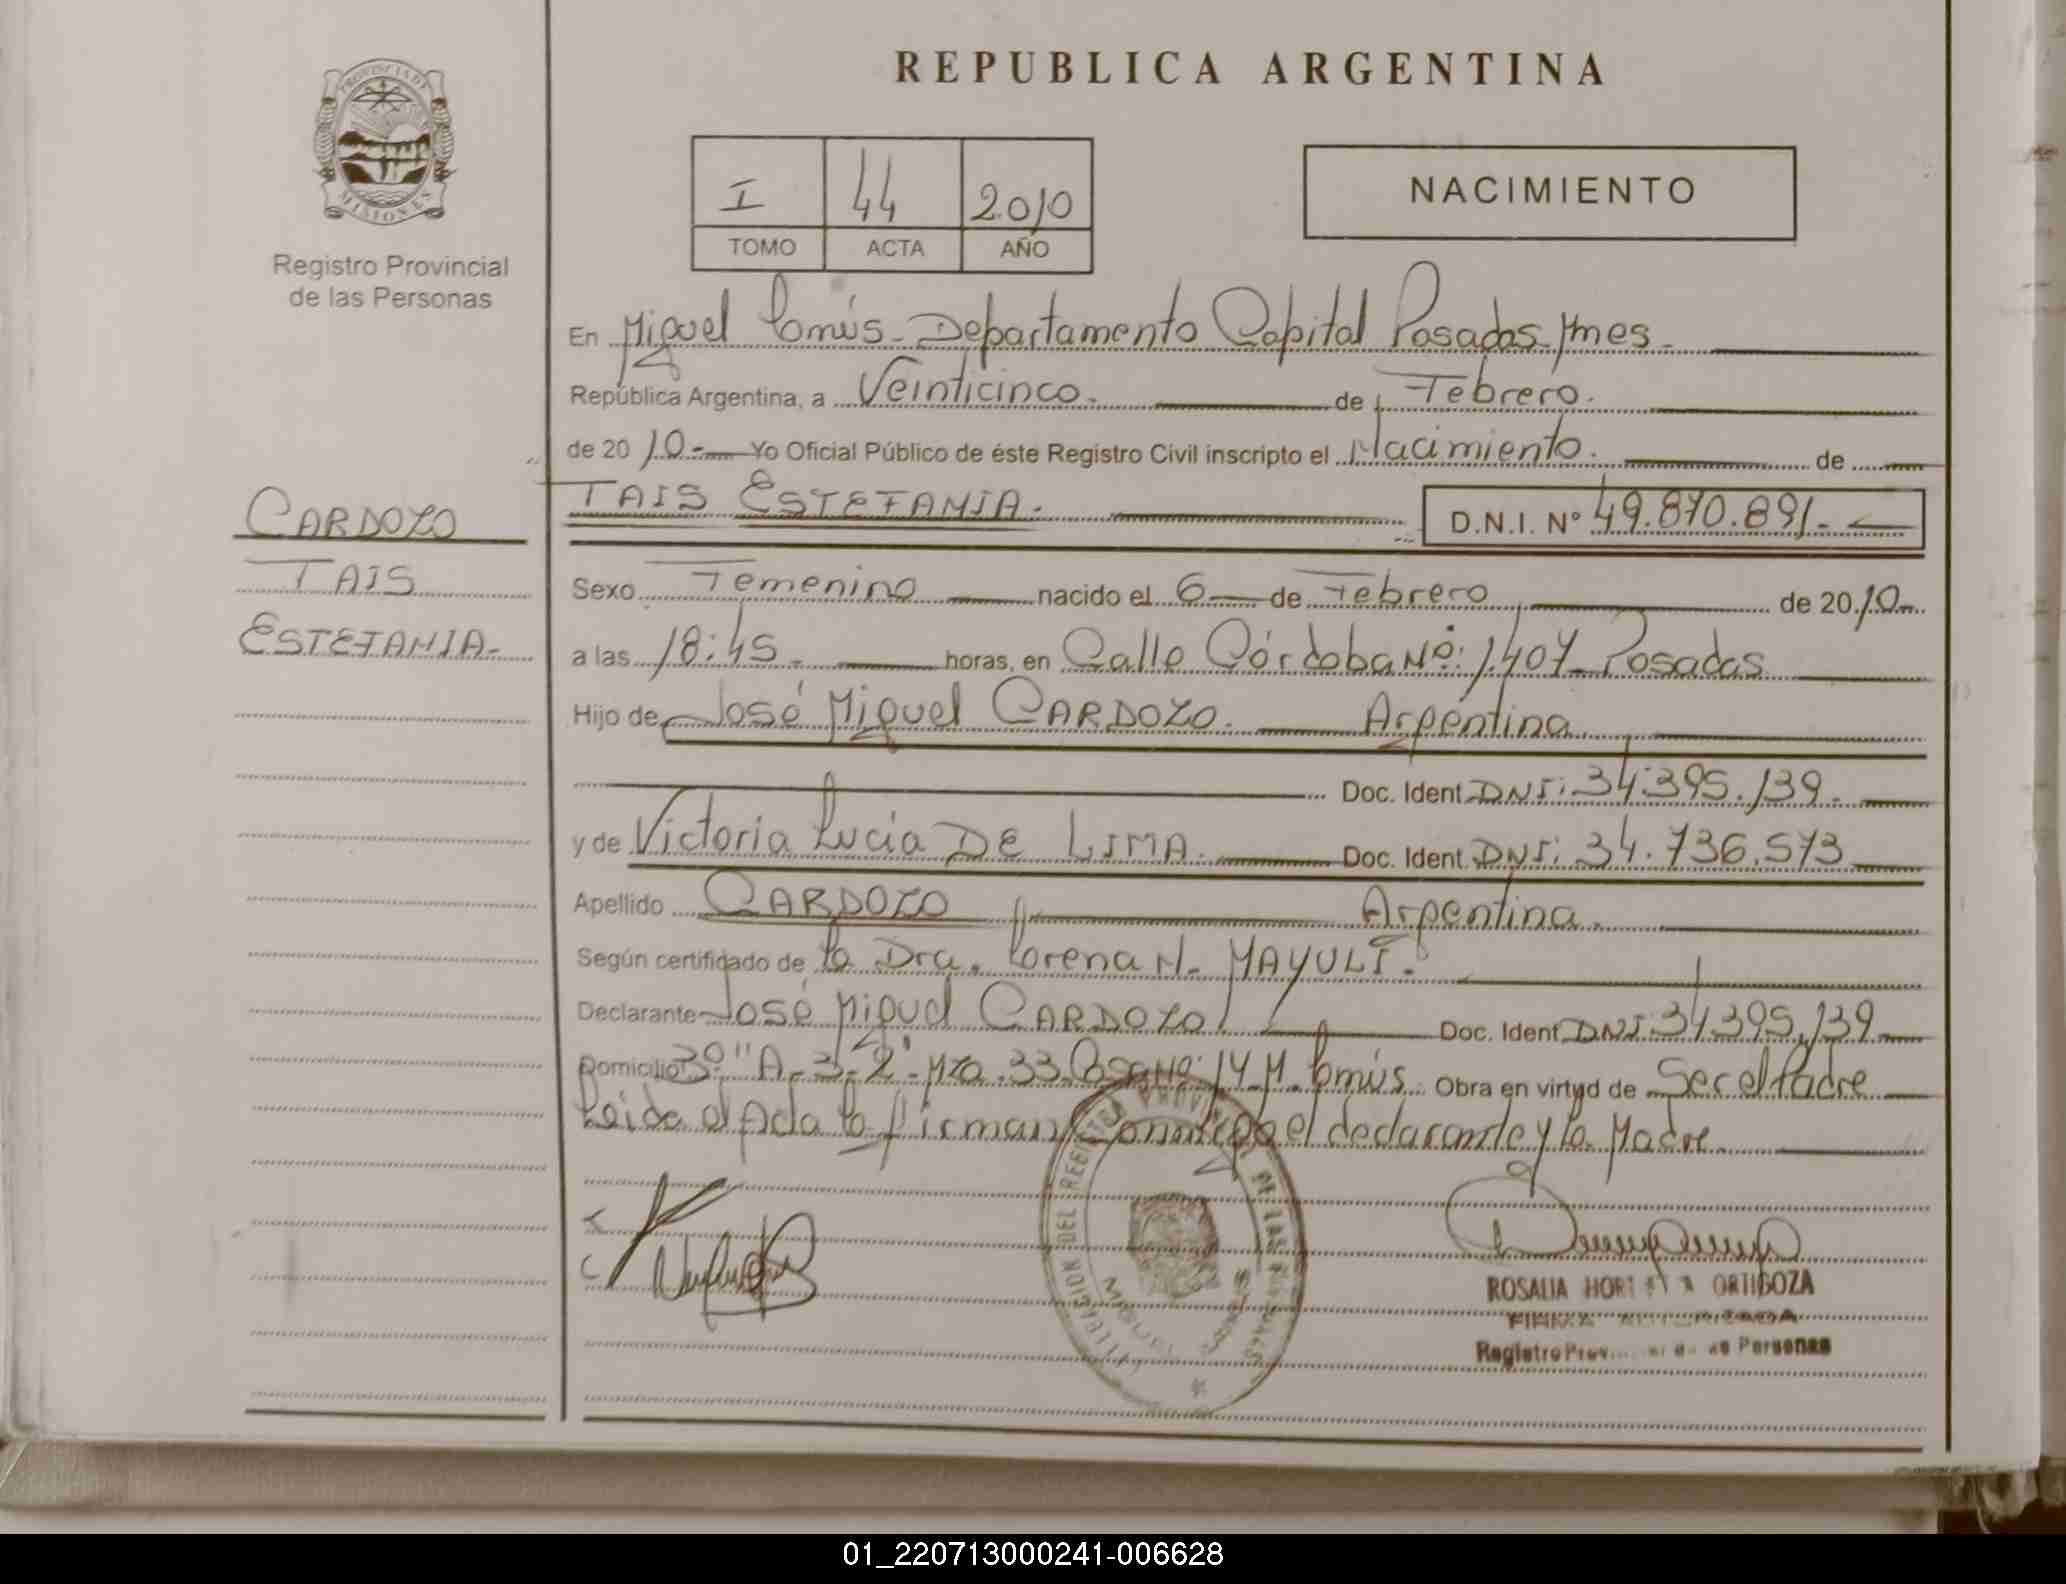 REPUBLICA ARGENTINA
PROVINCIA DE
MISIONES
Registro Provincial
de las Personas
I 44 2010
TOMO ACTA AÑO
NACIMIENTO
En Miguel Lanús - Departamento Capital Posadas Mnes -
República Argentina, a Veinticinco. de Febrero.
de 20 10.- Yo Oficial Público de éste Registro Civil inscripto el Nacimiento. de
TAIS ESTEFANIA. D.N.I. Nº 49.870.891.-
CARDOZO
TAIS
ESTEFANIA-
Sexo Femenino nacido el 6 de Febrero de 20 10-
a las 18:45. horas, en Calle Córdoba Nº: 1.407- Posadas
Hijo de José Miguel CARDOZO. Argentina
Doc. Ident. DNI: 34.395.139.
y de Victoria Lucia DE LIMA. Doc. Ident. DNI: 34.736.573
Apellido CARDOZO Argentina.
Según certificado de la Dra. Lorena N. MAYULI.
Declarante José Miguel CARDOZO Doc. Ident. DNI: 34.395.139
Domicilio Mza. 33. Casa Nº: 14 M. Lanús. Obra en virtud de Ser el Padre
Leida el Acta la firman Conmigo el declarante y la Madre
DELEGACION DEL REGISTRO PROVINCIAL DE LAS PERSONAS
ROSALIA ORTIGOZA
FIRMA AUTORIZADA
Registro Personas
01_220713000241-006628